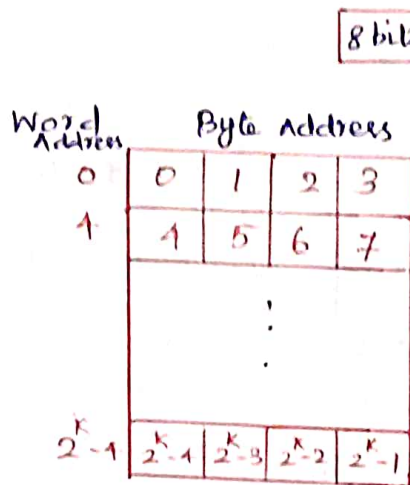 8 bit
Word Address Byte Address
0 0 1 2 3
4 4 5 6 7
2^K-4 2^K-4 2^K-3 2^K-2 2^K-1